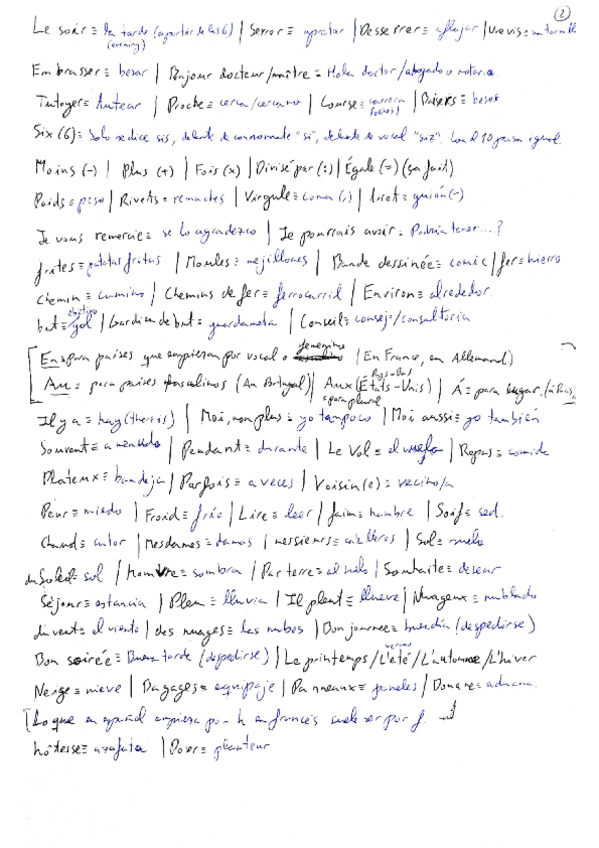 2
Le soir = la tarde (a partir de las 6) (evening) | Serrer = apretar | Desserrer = aflojar |
Embrasser = besar | Bonjour docteur/maître = Hola doctor/abogado o notario
Tutoyer = tutear | Proche = cerca/cercano | Course = carrera | Baisers = besos
Six (6) = Solo se dice sis, delante de consonante "si", delante de vocal "siz". Con el 10 pasa igual.
Moins (-) | Plus (+) | Fois (x) | Divisé par (:) | Égale (=) (ça fait)
Poids = peso | Rivets = remaches | Virgule = coma (,) | tiret = guión (-)
Je vous remercie = se lo agradezco | Je pourrais avoir = Podría tener...?
frites = patatas fritas | Moules = mejillones | Bande dessinée = comic | fer = hierro
Chemin = camino | Chemins de fer = ferrocarril | Environ = alrededor.
but = gol objetivo | Gardien de but = guardameta | Conseil = consejo/consultoria
En = para países que empiezan por vocal o femeninos | (En France, en Allemand)
Au = para países masculinos (Au Portugal) | Aux (États-Unis) = para plural | À = para lugar
Il y a = hay (there is) | Moi, non plus = yo tampoco | Moi aussi = yo también
Souvent = a menudo | Pendant = durante | Le Vol = el vuelo | Repas = comida
Plateaux = bandeja | Parfois = a veces | Voisin(e) = vecino/a
Peur = miedo | Froid = frío | Lire = leer | faim = hambre | Soif = sed.
Chaud = calor | Mesdames = damas | messieurs = caballeros | Sol = suelo
du Soleil = sol | = sombra | Par terre = al suelo | Souhaite = desear
Séjour = estancia | = lluvia | Il pleut = llueve | Nuageux = nublado
du vent = el viento | des nuages = las nubes | Bon journee = buen día (despedirse)
Bon soirée = Buena tarde (despedirse) | Le printemps/L'été verano/L'automne/L'hiver
Neige = nieve | Bagages = equipaje | Panneaux = paneles | Douane = aduana.
Lo que en español empieza por h en francés suele ser por f.
hôtesse = azafata | Poser =